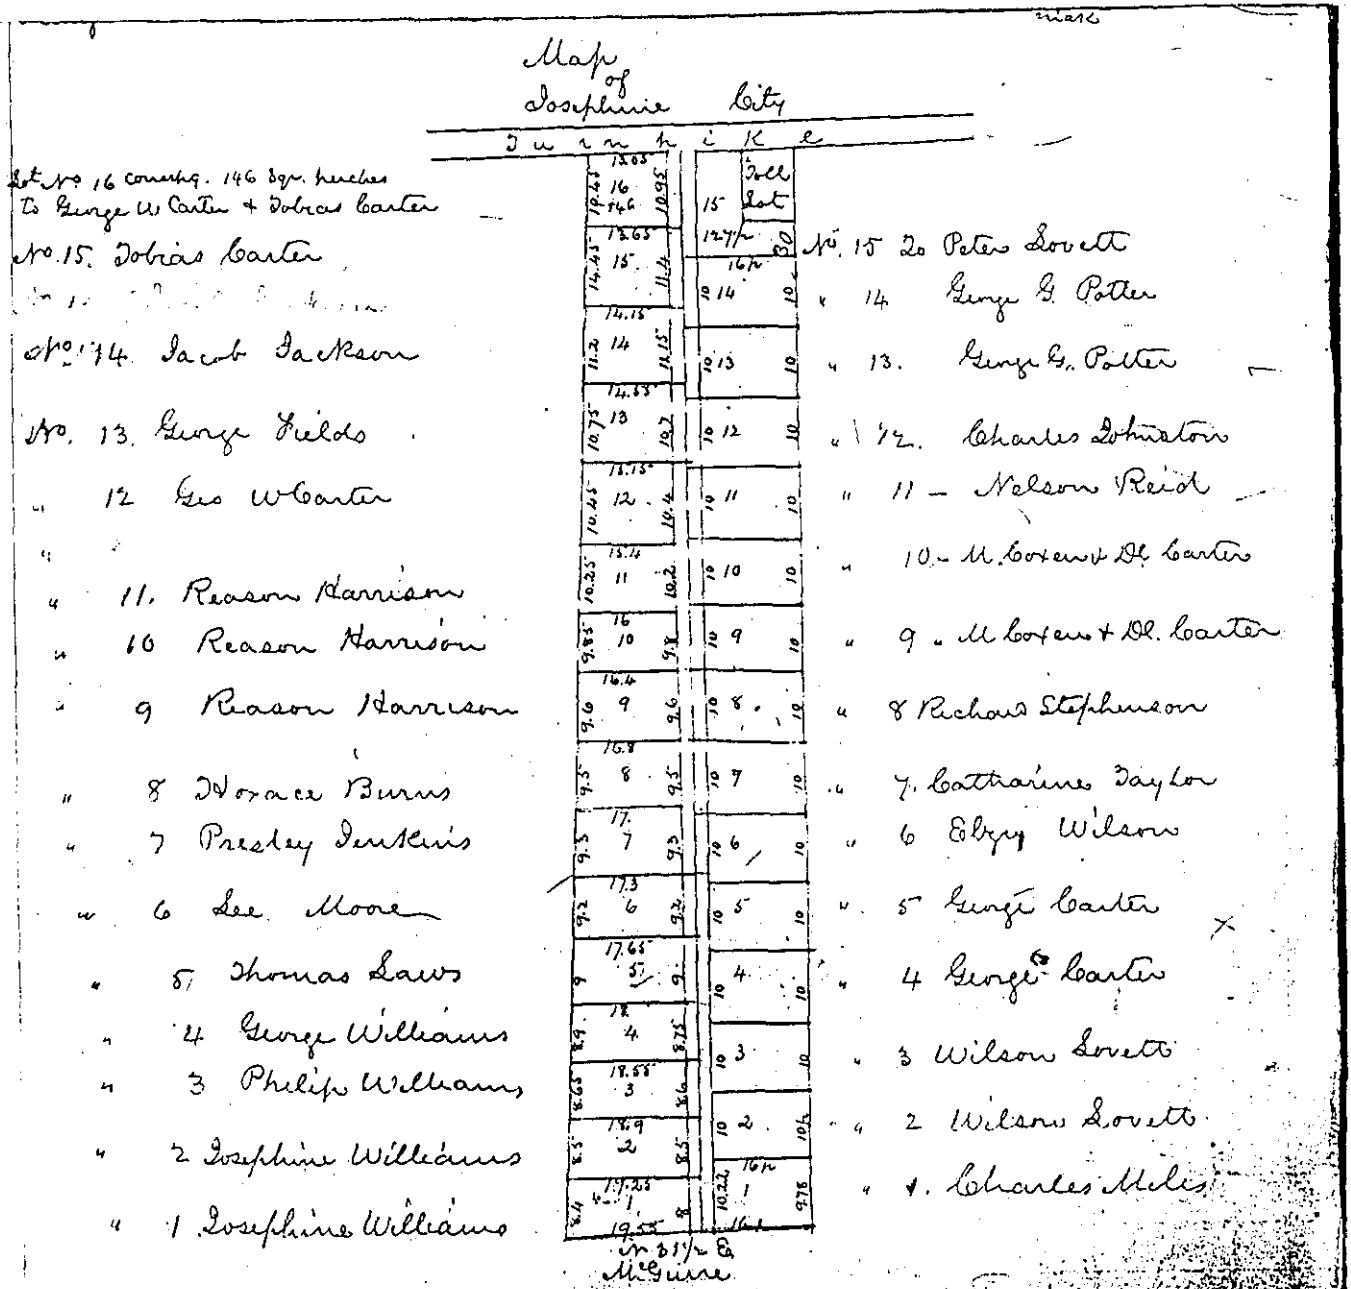 Map
of
Josephine City
Turnpike
Lot No 16 146 Sqr. perches
to George W Carter & Tobias Carter
No. 15. Tobias Carter
No. 14. Jacob Jackson
No. 13. George Fields
" 12 Geo W Carter
"
" 11. Reason Harrison
" 10 Reason Harrison
" 9 Reason Harrison
" 8 Horace Burns
" 7 Presley Jenkins
" 6 Lee Moore
" 5 Thomas Laws
" 4 George Williams
" 3 Philip Williams
" 2 Josephine Williams
" 1 Josephine Williams
16
146
10.95
13.65
14.45 15. 11.4
14.15
11.2 14 11.15
14.55
10.75 13 10.7
15.15
10.45 12. 10.4
15.4
10.25 11 10.2
16
9.85 10 9.8
16.4
9.6 9 9.6
16.8
9.5 8 9.5
17.
9.3 7 9.3
17.3
9.2 6 9.2
17.65
9 5 9
18
8.9 4 8.75
18.55
8.65 3 8.6
18.9
8.5 2 8.5
19.25
8.4 1 8
19.55
Toll
15 Lot
127p 30
16p
10 14 10
10 13 10
10 12 10
10 11 10
10 10 10
10 9 10
10 8. 10
10 7 10
10 6 10
10 5 10
10 4 10
10 3 10
10 2
16p
10.22 1 9.78
N 31½ E
McGuire
No. 15 To Peter Lovett
" 14 George G. Potter
" 13. George G. Potter
" 12. Charles Johnston
" 11 - Nelson Reid
" 10 - M. Coxen & Dl. Carter
" 9 " M Coxen & Dl. Carter
" 8 Richard Stephenson
" 7. Catharine Taylor
" 6 Elzy Wilson
" 5 George Carter
" 4 George Carter
" 3 Wilson Lovett
" 2 Wilson Lovett
" 1. Charles Miles